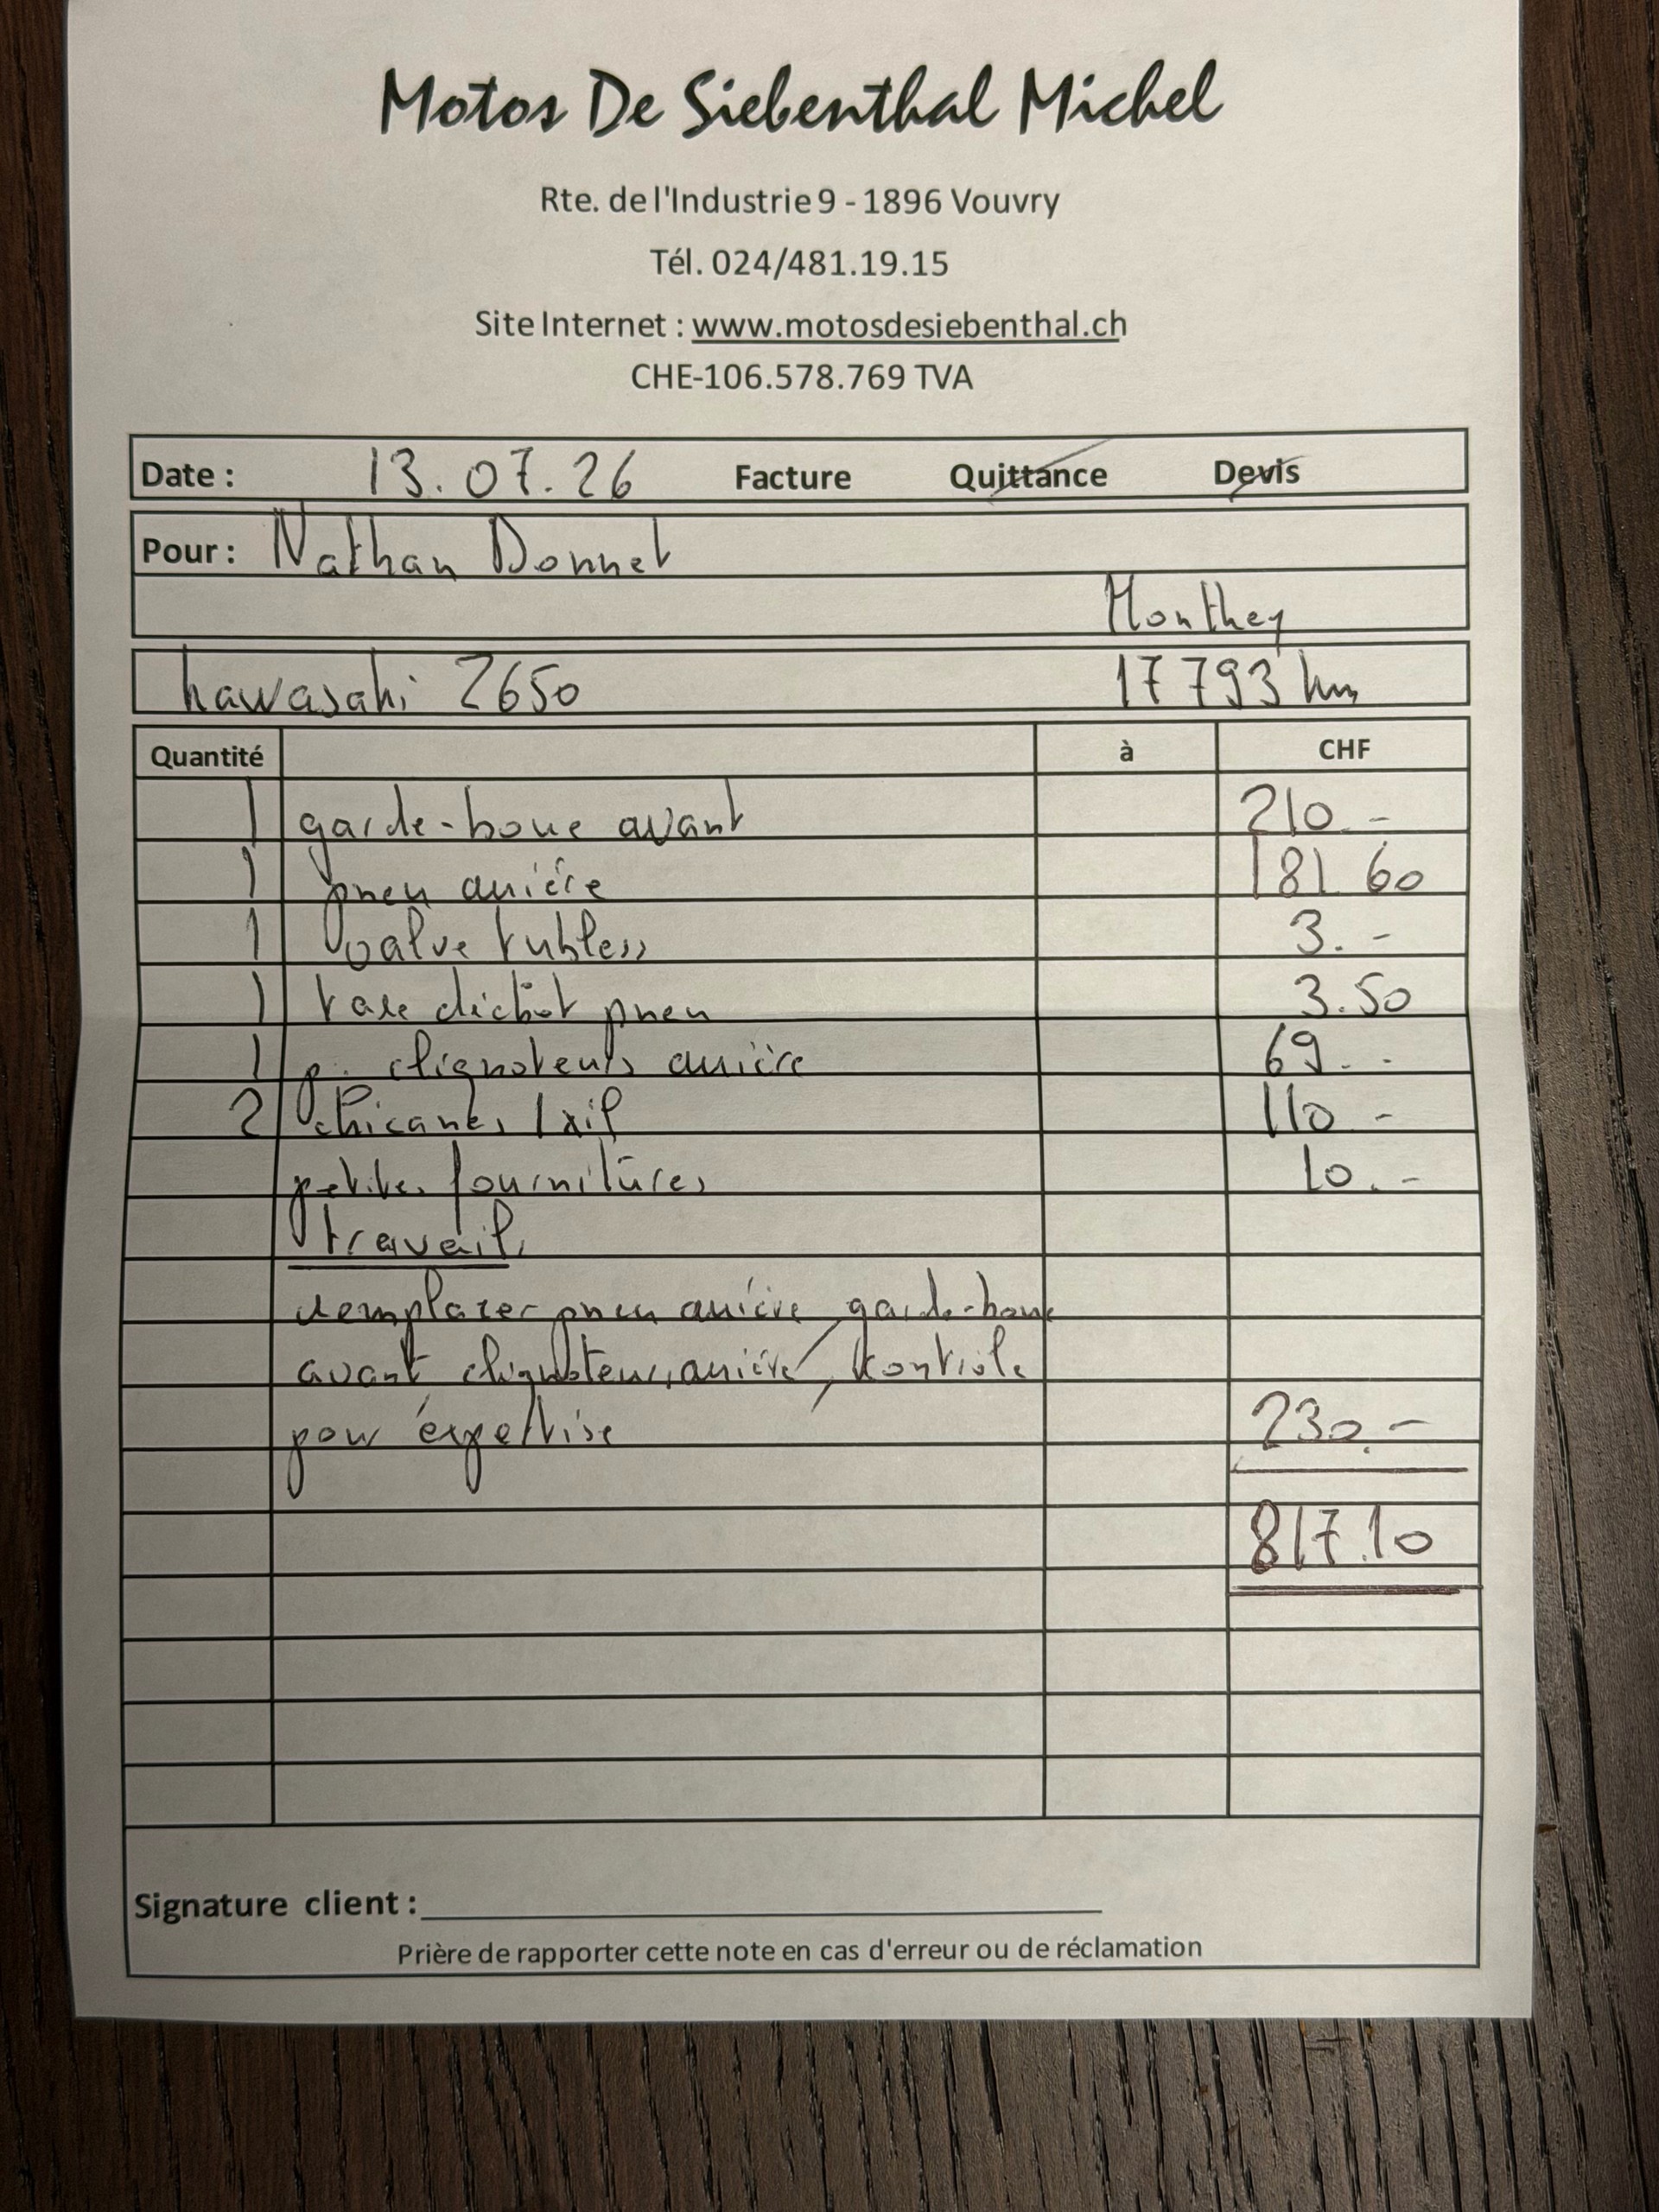 Motos De Siebenthal Michel
Rte. de l'Industrie 9 - 1896 Vouvry
Tél. 024/481.19.15
Site Internet : www.motosdesiebenthal.ch
CHE-106.578.769 TVA
Date : 13.07.26 Facture Quittance Devis
Pour : Nathan Donnet
Monthey
kawasaki Z650 17793 km
Quantité à CHF
1 garde-boue avant 210.-
1 pneu arrière 181 60
1 valve tubless 3.-
1 taxe déchet pneu 3.50
1 p. clignoteurs arrière 69.-
2 chicanes 110.-
petites fournitures 10.-
travail
remplacer pneu arrière garde-boue
avant clignoteurs arrière, kontrôle
pour expertise 230.-
817.10
Signature client :
Prière de rapporter cette note en cas d'erreur ou de réclamation